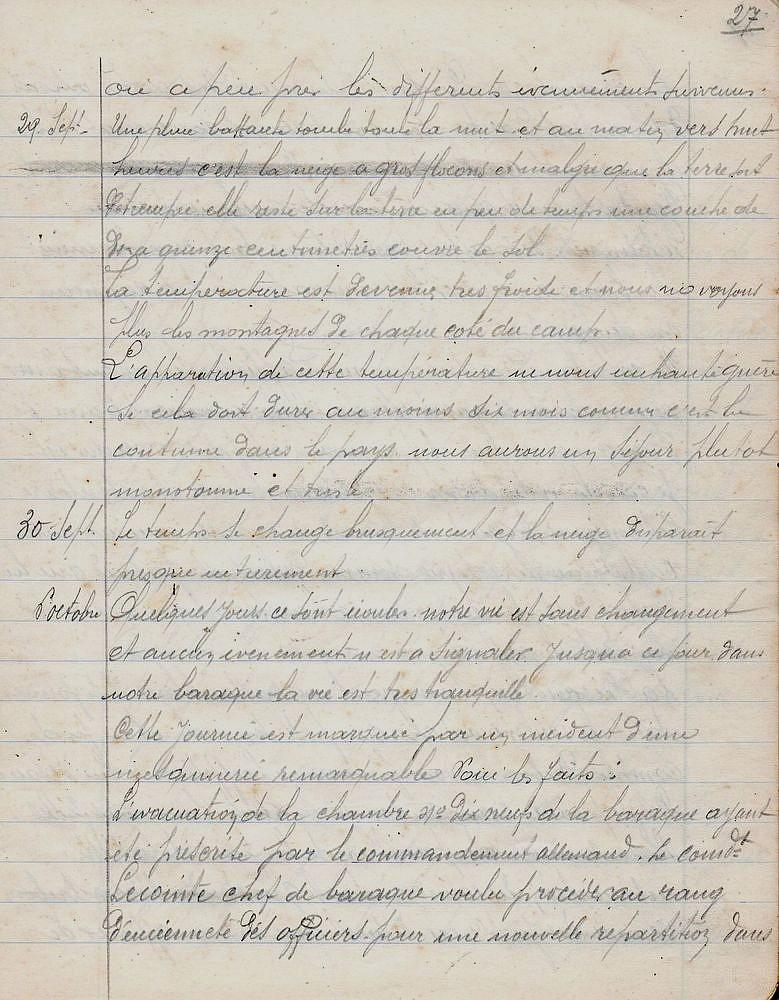 27
ou a peu pres les differents evenements survenus.
29. Sept. Une pluie battante tombe toute la nuit et au matin vers huit
heures c'est la neige a gros flocons et malgre que la terre soit
detrempée elle reste sur la terre en peu de temps une couche de
dix a quinze centimetres couvre le sol.
La temperature est devenue tres froide et nous ne voyons
plus les montagnes de chaque coté du camp.
L'apparation de cette température ne nous enchante guère
Si cela doit durer au moins six mois comme c'est la
coutume dans le pays nous aurons un séjour plutot
monotonne et triste
30 Sept. Le temps se change brusquement et la neige disparait
presque entierement
octobre Quelques jours ce sont ecoules notre vie est sans changement
et aucun evenement n'est a signaler. Jusqu'a ce jour dans
notre baraque la vie est tres tranquille.
Cette journée est marquée par un incident d'une
mesquinerie remarquable Voici les faits :
L'evacuation de la chambre No dix neuf de la baraque ayant
eté prescrite par le commandement allemand. Le comdt
Lecointe chef de baraque voulu procéder au rang
d'encienneté des officiers pour une nouvelle repartition dans